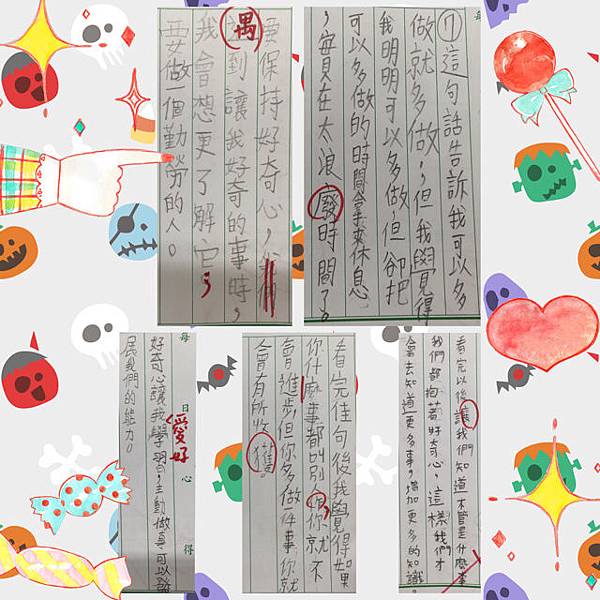 保持好奇心,
遇
到讓我好奇的事時,
我會想更了解它,
要做一個勤勞的人。
⑦這句話告訴我可以多
做就多做,但我覺得
我明明可以多做,但卻把
可以多做的時間拿來休息
,實在太浪廢時間了。
每日心得
愛好
好奇心讓我學習,主動做事可以
民我們的能力。
看完佳句後我覺得如果
你什麼事都叫別 你就不
會進步,但你多做一件事,你就
會有所收獲。
看完以後讓我們知道不管是什麼事
我們都抱著好奇心,這樣我們才
會去知道更多事,增加更多的知識。